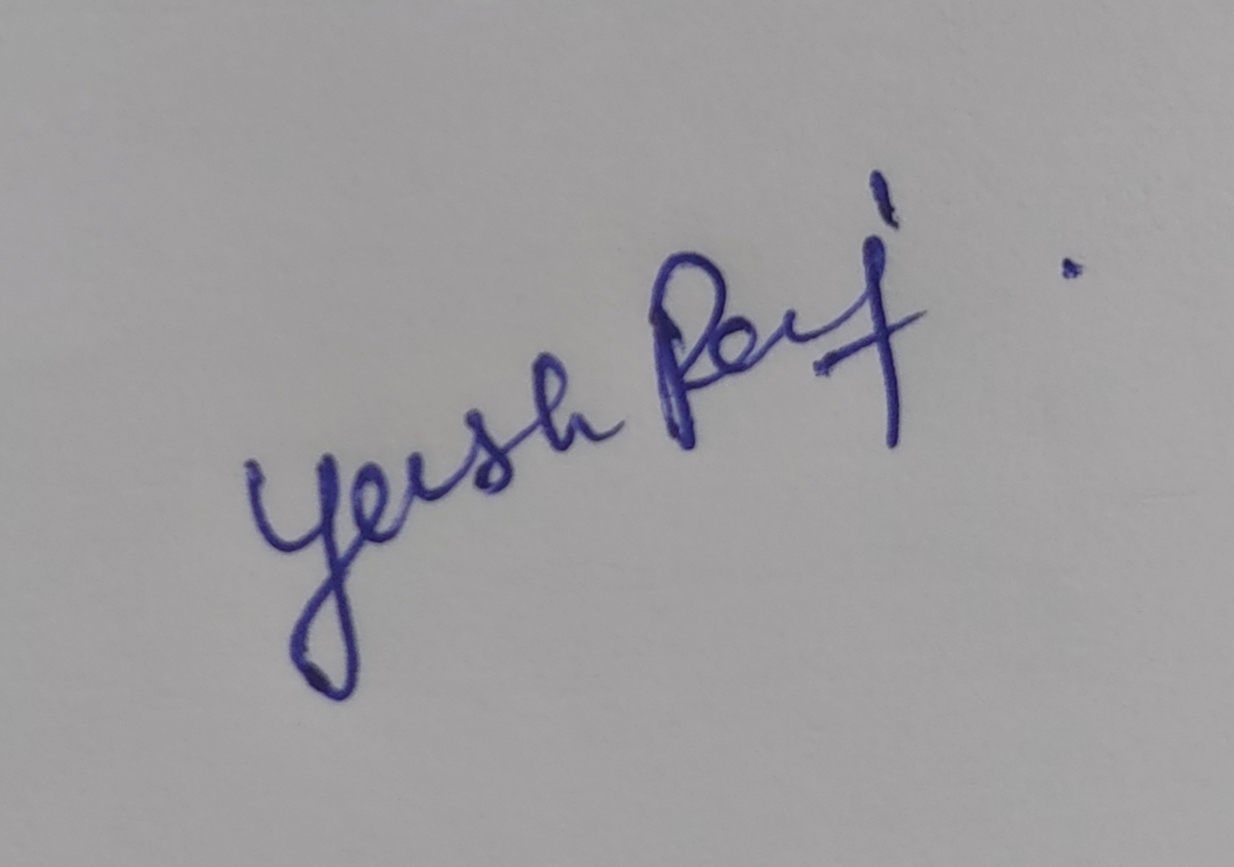 Yash Raj.